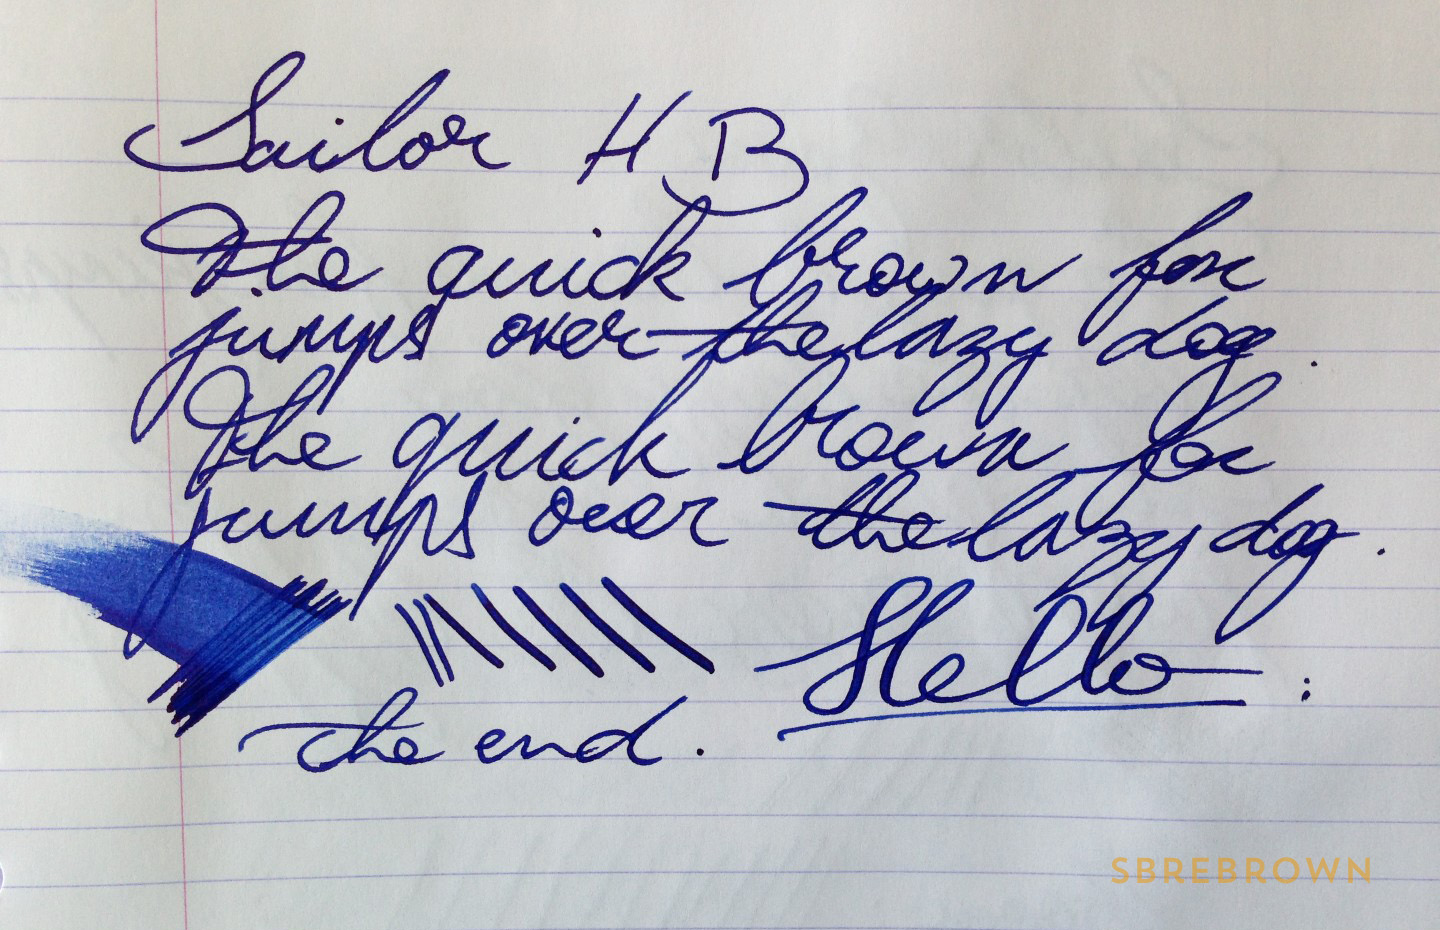 Sailor HB
The quick brown fox
jumps over the lazy dog.
The quick brown fox
jumps over the lazy dog.
Hello
the end.
SBREBROWN